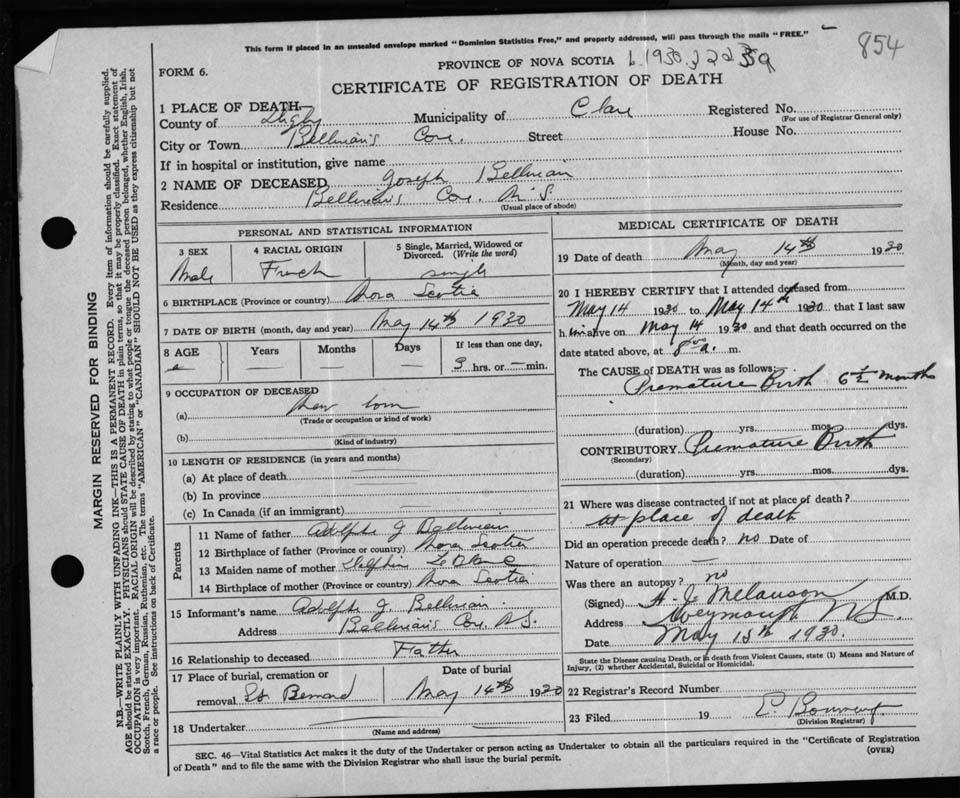 This form if placed in an unsealed envelope marked "Dominion Statistics Free," and properly addressed, will pass through the mails "FREE."
854
PROVINCE OF NOVA SCOTIA
FORM 6.
CERTIFICATE OF REGISTRATION OF DEATH
1 PLACE OF DEATH—
County of Digby Municipality of Clare Registered No.
(For use of Registrar General only)
City or Town Belliveau's Cove. Street House No.
If in hospital or institution, give name
2 NAME OF DECEASED Joseph Belliveau
Residence Belliveau's Cove. N.S.
(Usual place of abode)
PERSONAL AND STATISTICAL INFORMATION
3 SEX
Male
4 RACIAL ORIGIN
French
5 Single, Married, Widowed or Divorced. (Write the word)
single
6 BIRTHPLACE (Province or country) Nova Scotia
7 DATE OF BIRTH (month, day and year) May 14th 1930
8 AGE Years Months Days If less than one day,
3 hrs. or — min.
9 OCCUPATION OF DECEASED
(a) New born
(Trade or occupation or kind of work)
(b)
(Kind of industry)
10 LENGTH OF RESIDENCE (in years and months)
(a) At place of death
(b) In province
(c) In Canada (if an immigrant)
Parents
11 Name of father Adolphe J Belliveau
12 Birthplace of father (Province or country) Nova Scotia
13 Maiden name of mother LeBlanc
14 Birthplace of mother (Province or country) Nova Scotia
15 Informant's name Adolphe J. Belliveau
Address Belliveau's Cove N.S.
16 Relationship to deceased Father
17 Place of burial, cremation or removal St. Bernard
Date of burial
May 14th 1930
18 Undertaker
(Name and address)
MEDICAL CERTIFICATE OF DEATH
19 Date of death May 14th 1930
(Month, day and year)
20 I HEREBY CERTIFY that I attended deceased from
May 14 1930 to May 14th 1930 that I last saw
him alive on May 14 1930 and that death occurred on the
date stated above, at 8 a. m.
The CAUSE of DEATH was as follows:
Premature Birth 6½ months
(duration) yrs. mos. dys.
CONTRIBUTORY Premature Birth
(Secondary)
(duration) yrs. mos. dys.
21 Where was disease contracted if not at place of death?
at place of death
Did an operation precede death? no Date of
Nature of operation —
Was there an autopsy? no
(Signed) H. J. Melanson M.D.
Address Weymouth N.S.
Date May 15th 1930.
State the Disease causing Death, or in death from Violent Causes, state (1) Means and Nature of Injury, (2) whether Accidental, Suicidal or Homicidal.
22 Registrar's Record Number
23 Filed 19
(Division Registrar)
SEC. 46—Vital Statistics Act makes it the duty of the Undertaker or person acting as Undertaker to obtain all the particulars required in the "Certificate of Registration
of Death" and to file the same with the Division Registrar who shall issue the burial permit.
(OVER)
MARGIN RESERVED FOR BINDING
N.B.—WRITE PLAINLY WITH UNFADING INK—THIS IS A PERMANENT RECORD. Every item of information should be carefully supplied.
AGE should be stated EXACTLY. PHYSICIANS should STATE CAUSE OF DEATH in plain terms, so that it may be properly classified. Exact statement of
OCCUPATION is very important. RACIAL ORIGIN will be described by stating to what people or tongue the deceased person belonged, whether English, Irish,
Scotch, French, German, Russian, Ruthenian, etc. The terms "AMERICAN" or "CANADIAN" SHOULD NOT BE USED as they express citizenship but not
a race or people. See instructions on back of Certificate.